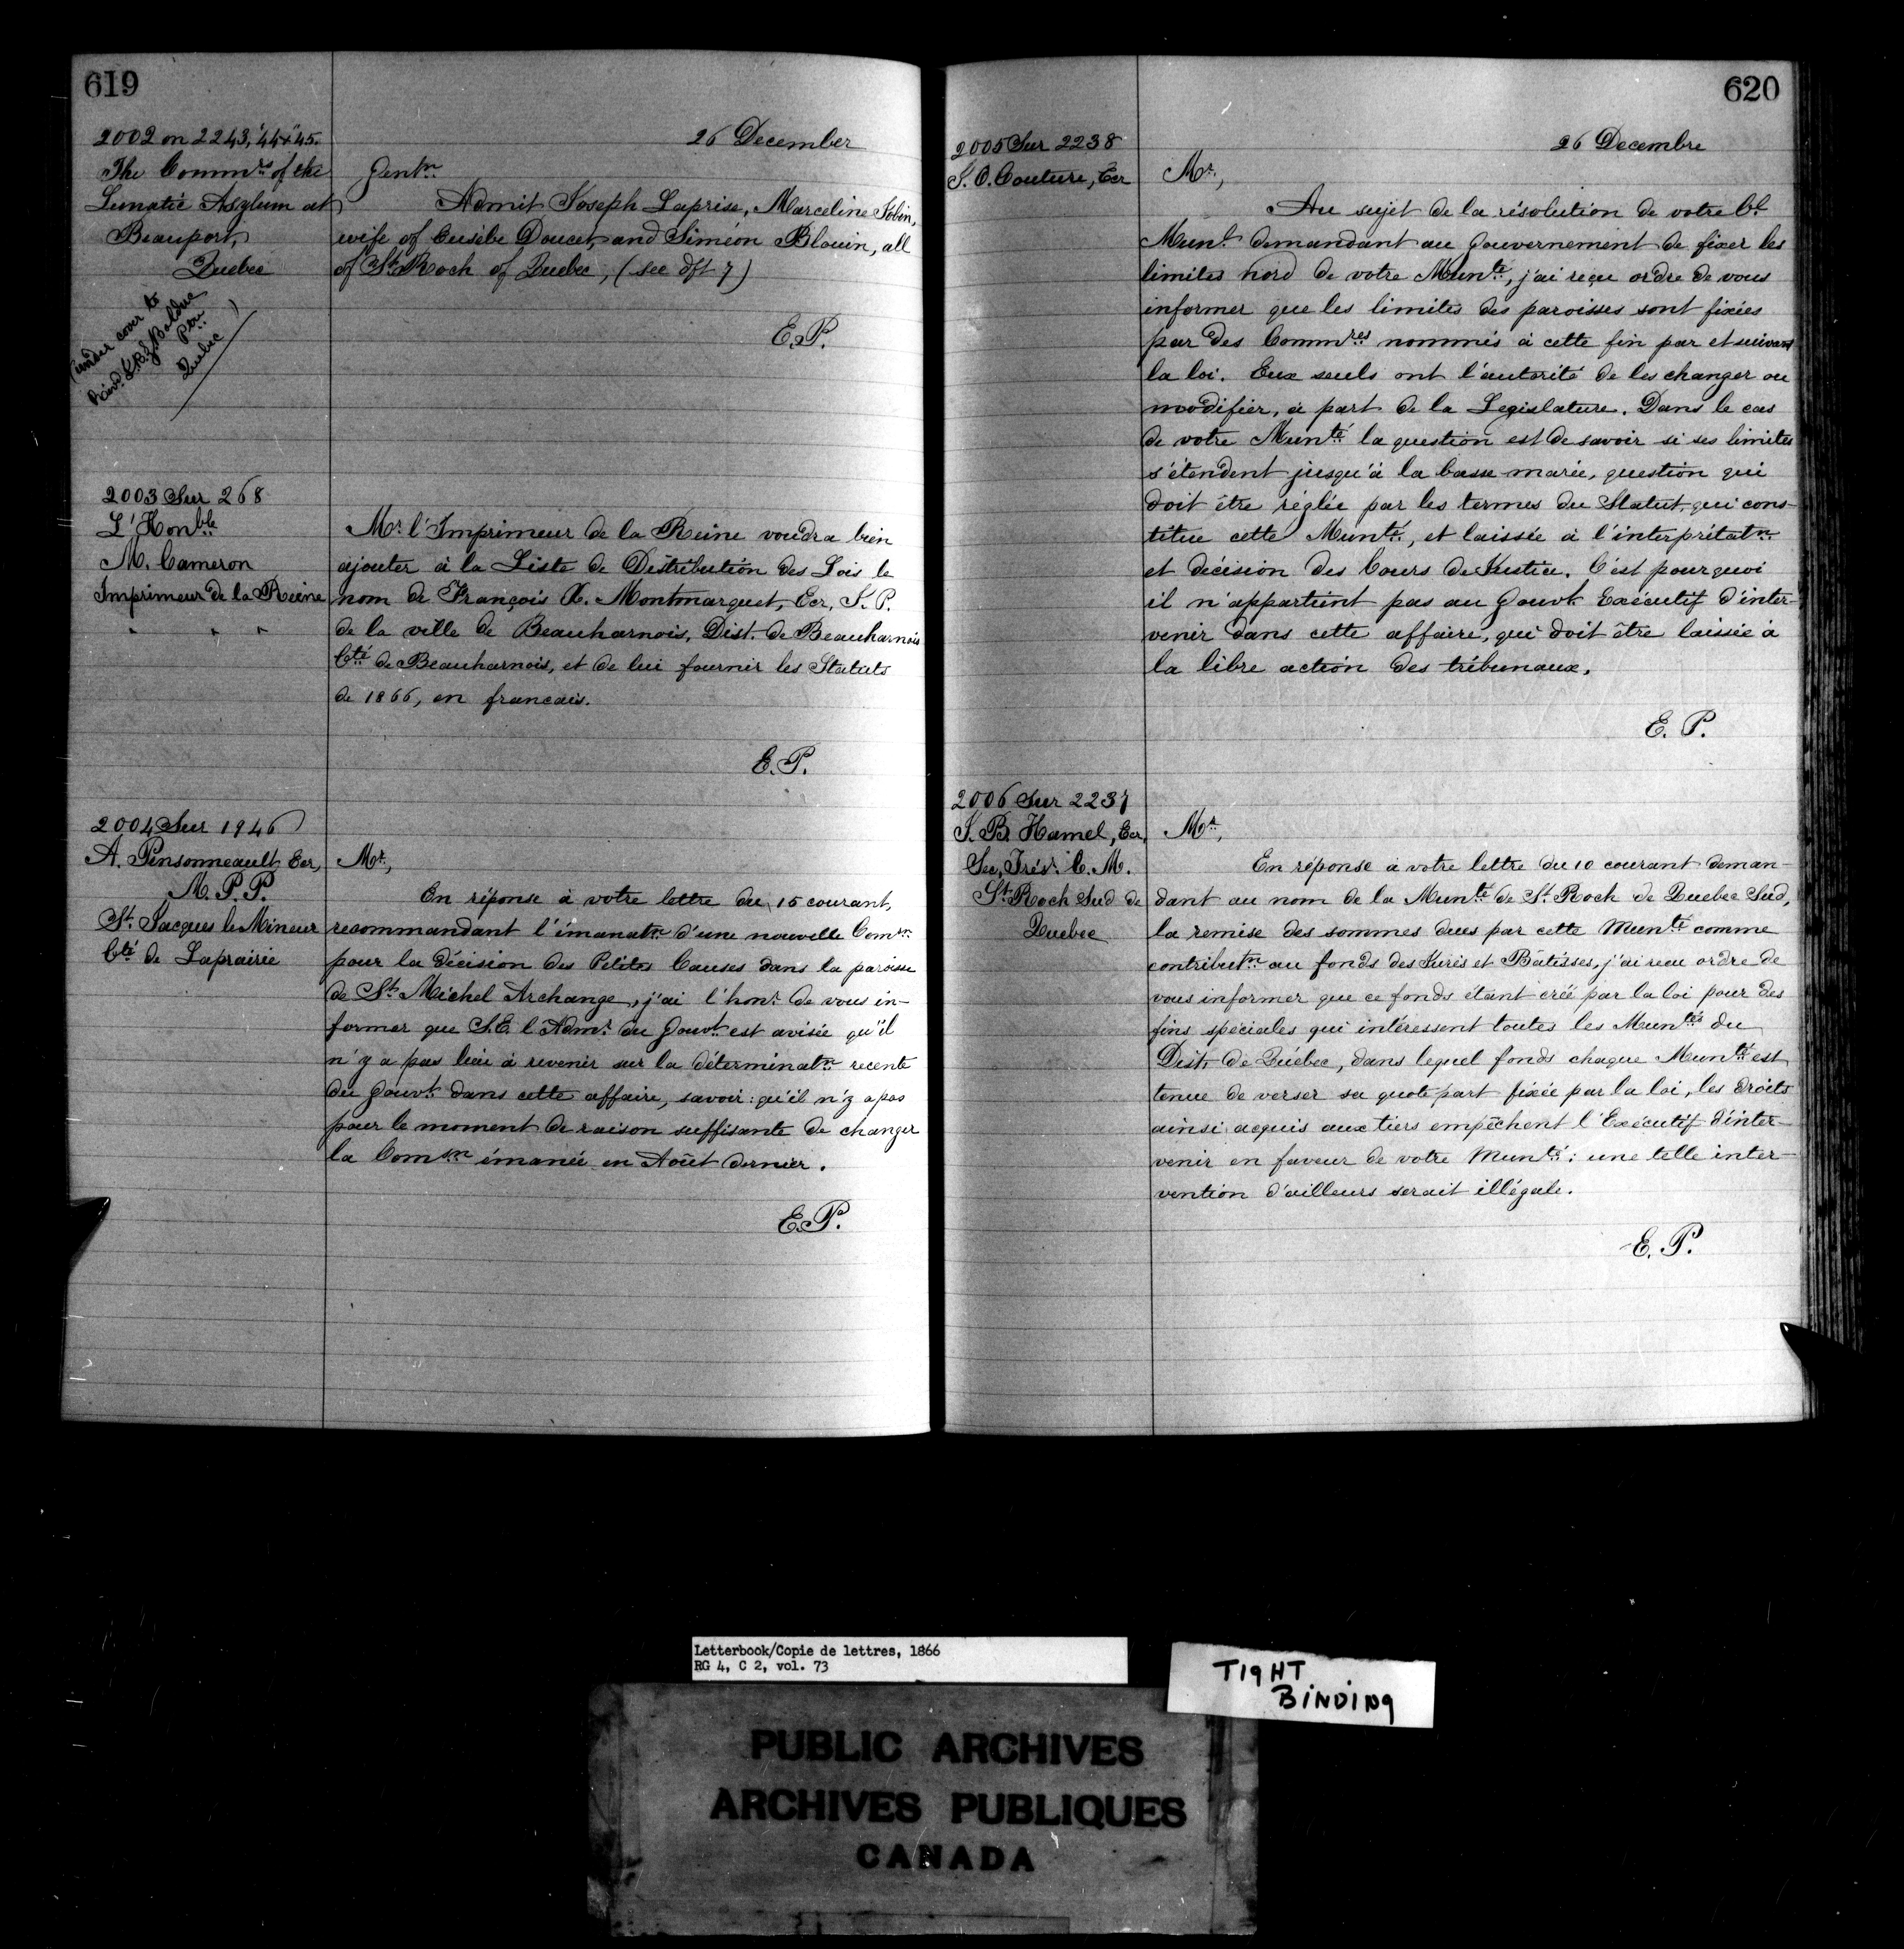 619
26 December
2002 on 2243, "44 & "45.
The Commrs of the
Lunatic Asylum at
Beauport,
Quebec
(under cover to
Quebec)
Gentn
Admit Joseph Laprise, Marceline Jobin,
wife of Eusèbe Doucet, and Siméon Blouin, all
of St Roch of Quebec, (see dft 7)
E. P.
2003 Sur 268
L'Honble
M. Cameron
Imprimeur de la Reine
" " "
Mr l'Imprimeur de la Reine voudra bien
ajouter à la Liste de Distribution des Lois le
nom de François X. Montmarquet, Ecr, J. P.
de la ville de Beauharnois, Dist. de Beauharnois
Cté de Beauharnois, et de lui fournir les Statuts
de 1866, en francais.
E. P.
2004 Sur 1946
A. Pinsonneault Ecr,
M. P. P.
St Jacques le Mineur
Cté de Laprairie
Mr,
En réponse à votre lettre du 15 courant,
recommandant l'émanatn d'une nouvelle Comsn
pour la décision des Petites Causes dans la paroisse
de St Michel Archange, j'ai l'honr de vous in-
former que S.E. l'Admr du Gouvt est avisée qu'il
n'y a pas lieu à revenir sur la déterminatn recente
du Gouvt dans cette affaire, savoir: qu'il n'y a pas
pour le moment de raison suffisante de changer
la Comsn émanée en Août dernier.
E. P.
620
26 Decembre
2005 Sur 2238
J. O. Couture, Ecr
Mr,
Au sujet de la résolution de votre Cl
Munl demandant au Gouvernement de fixer les
limites nord de votre Munté, j'ai reçu ordre de vous
informer que les limites des paroisses sont fixées
par des Commres nommés à cette fin par et suivant
la loi. Eux seuls ont l'autorité de les changer ou
modifier, à part de la Legislature. Dans le cas
de votre Munté la question est de savoir si ses limites
s'étendent jusqu'à la basse marée, question qui
doit être réglée par les termes du Statut qui cons-
titue cette Munté, et laissée à l'interprétatn
et décision des Cours de Justice. C'est pourquoi
il n'appartient pas au Gouvt Exécutif d'inter-
venir dans cette affaire, qui doit être laissée à
la libre action des tribunaux.
E. P.
2006 Sur 2237
J. B. Hamel, Ecr,
Sec. Trésr C. M.
St Roch Sud de
Quebec
Mr,
En réponse à votre lettre du 10 courant deman-
dant au nom de la Munté de St Roch de Quebec Sud,
la remise des sommes dues par cette Munté comme
contributn au fonds des Jurés et Bâtisses, j'ai reçu ordre de
vous informer que ce fonds étant créé par la loi pour des
fins speciales qui intéressent toutes les Muntés du
Dist. de Québec, dans lequel fonds chaque Munté est
tenue de verser sa quote part fixée par la loi, les droits
ainsi acquis aux tiers empêchent l'Exécutif d'inter-
venir en faveur de votre Munté: une telle inter-
vention d'ailleurs serait illégale.
E. P.
Letterbook/Copie de lettres, 1866
RG 4, C 2, vol. 73
TIGHT
BINDING
PUBLIC ARCHIVES
ARCHIVES PUBLIQUES
CANADA